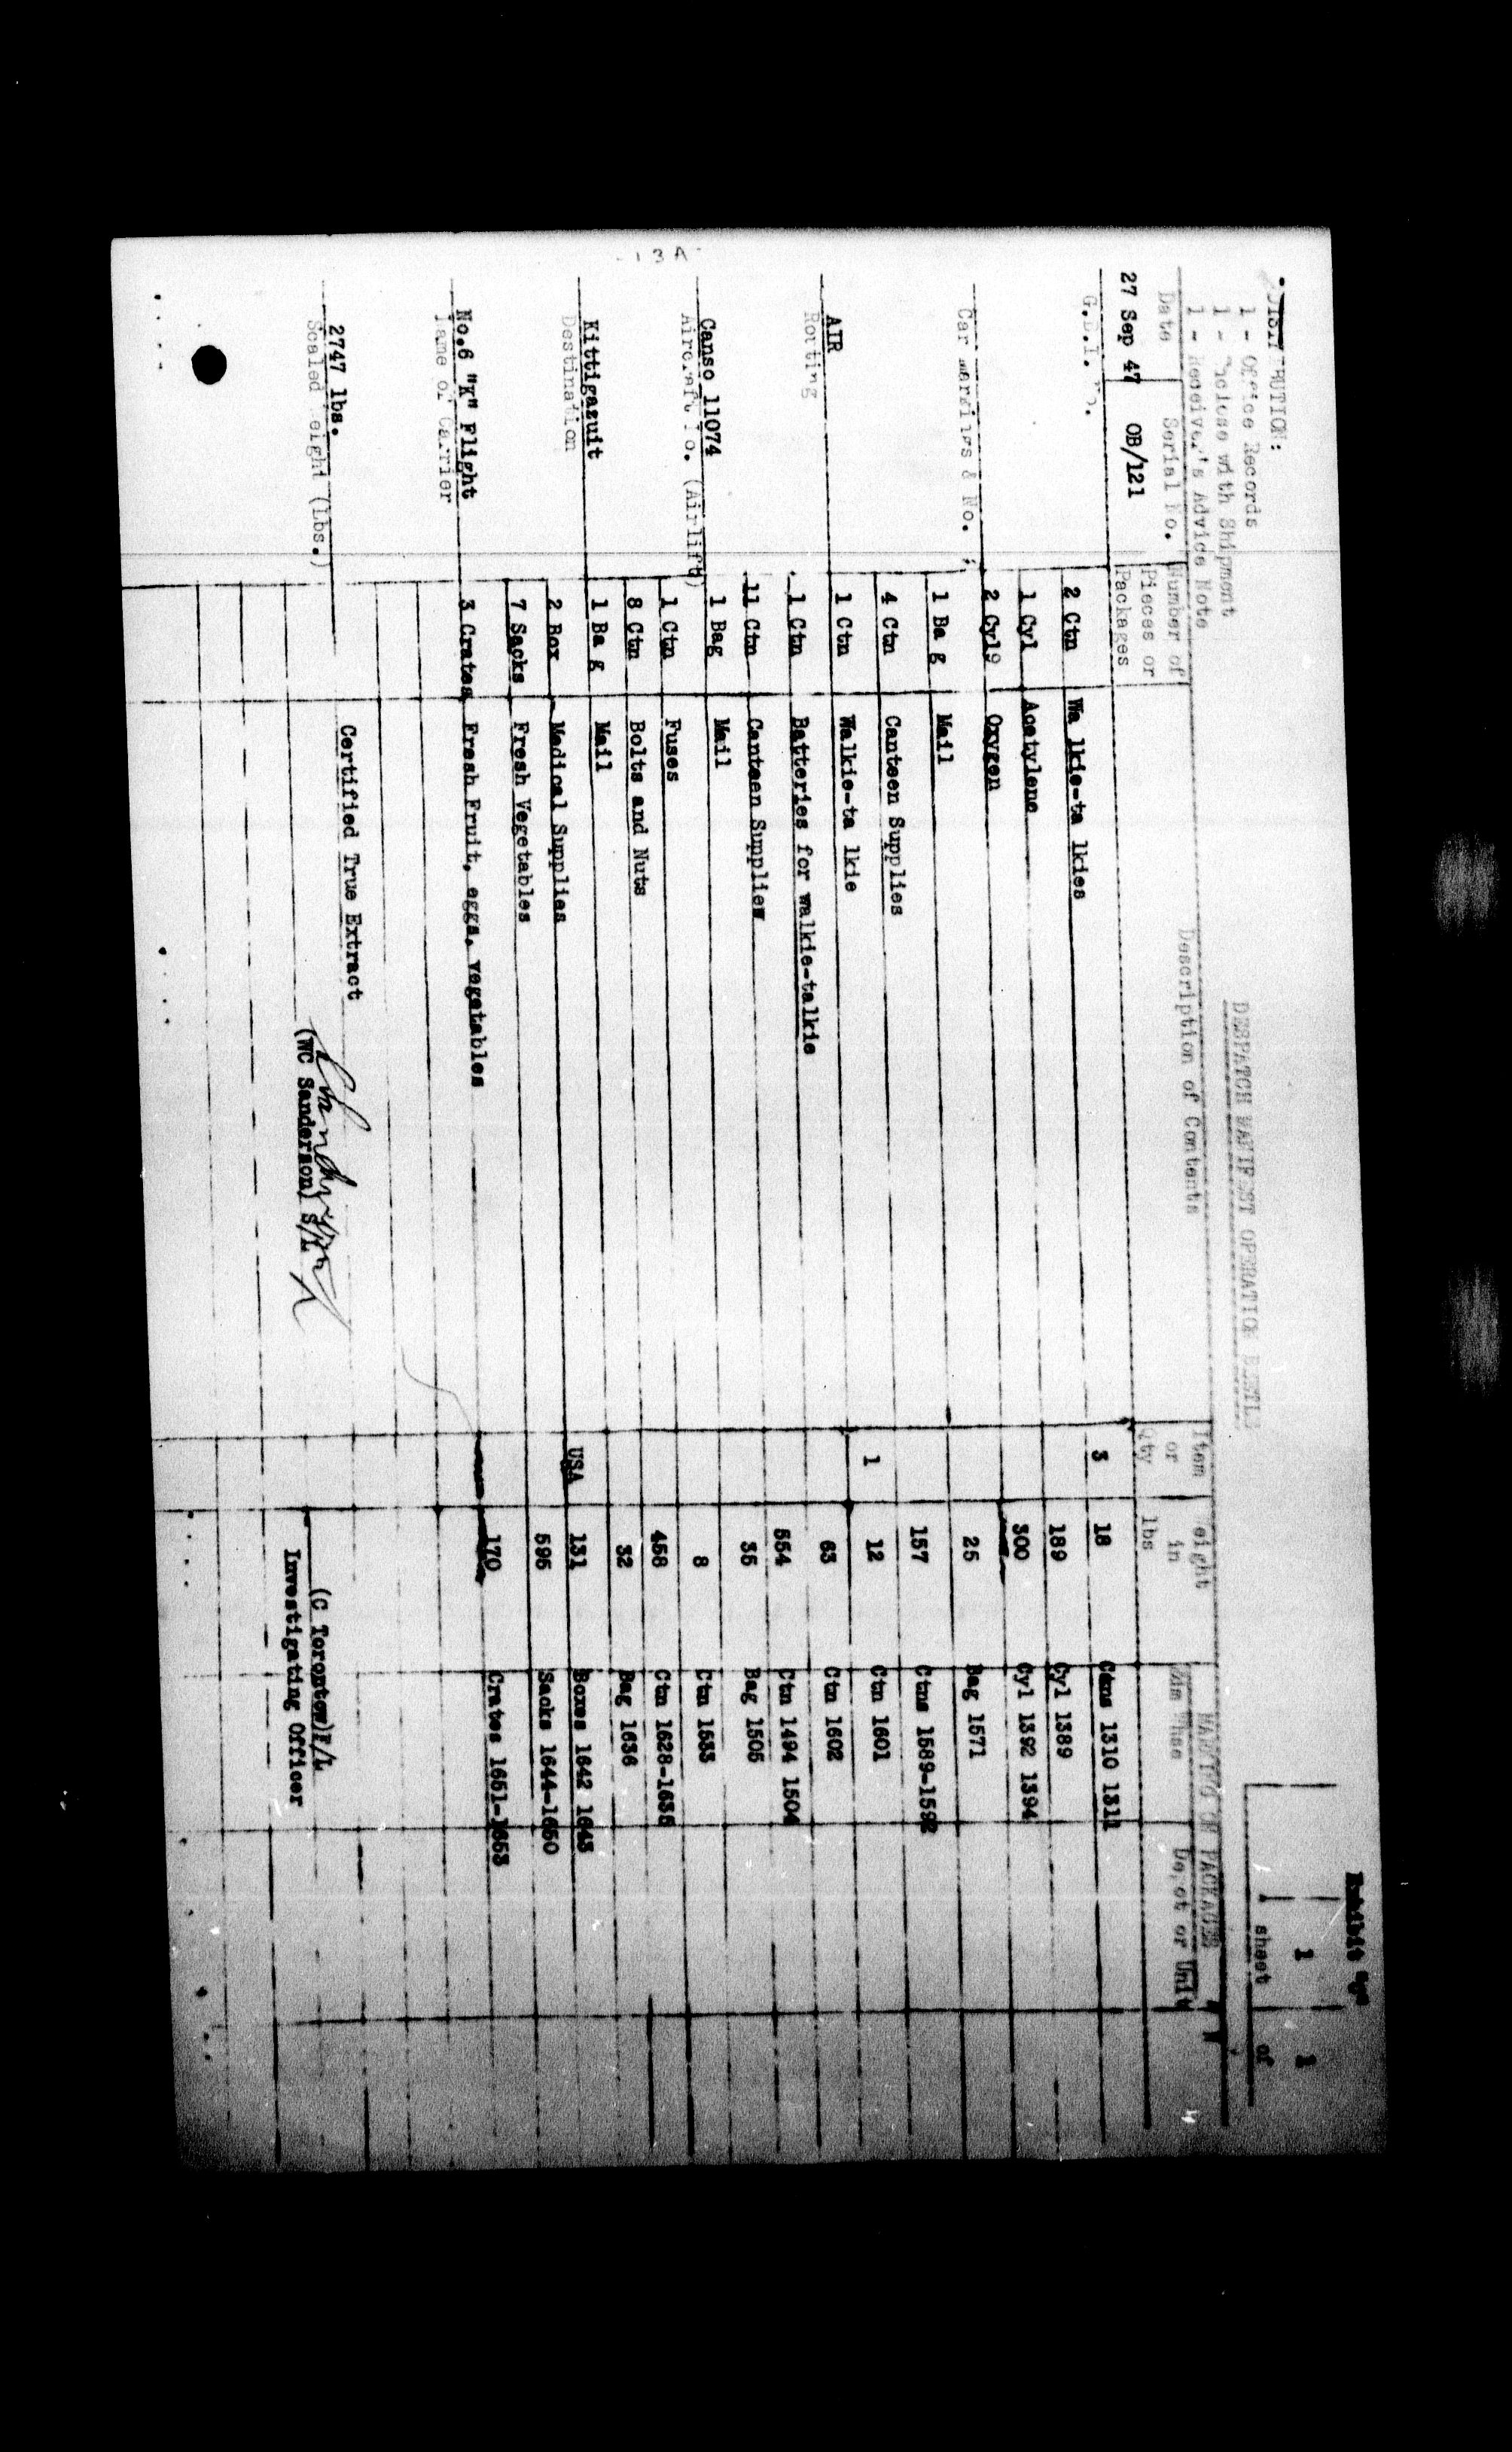 1 1
sheet of
DISTRIBUTION:
1 - Office Records
1 - Enclose with Shipment
1 - Receiver's Advice Note
DESPATCH MANIFEST OPERATION
Date Serial No.
27 Sep 47 OB/121
Number of Pieces or Packages
Description of Contents
Item or Qty
Weight in lbs
MARKINGS ON PACKAGES
Depot or Unit
2 Ctn Wa lkie-ta lkies 3 18 Ctns 1310 1311
1 Cyl Acetylene 189 Cyl 1389
Car markings & No.
2 Cyl9 Oxygen 300 Cyl 1392 1394
1 Ba g Mail 25 Bag 1571
4 Ctn Canteen Supplies 157 Ctns 1589-1592
AIR
Routing
1 Ctn Walkie-ta lkie 1 12 Ctn 1601
1 Ctn Batteries for walkie-talkie 63 Ctn 1602
11 Ctn Canteen Supplies 554 Ctn 1494 1504
Canso 11074
Aircraft No. (Airlift)
1 Bag Mail 35 Bag 1505
1 Ctn Fuses 8 Ctn 1533
8 Ctn Bolts and Nuts 458 Ctn 1628-1635
Kittigazuit
Destination
1 Ba g Mail 32 Bag 1636
2 Box Medical Supplies USA 131 Boxes 1642 1643
7 Sacks Fresh Vegetables 595 Sacks 1644-1650
No.6 "K" Flight
Name of Carrier
3 Crates Fresh Fruit, eggs, vegetables 170 Crates 1651-1653
2747 lbs.
Scaled Weight (Lbs.)
Certified True Extract
(WC Sanderson) S/L
(C Torontow)F/L
Investigating Officer
13A